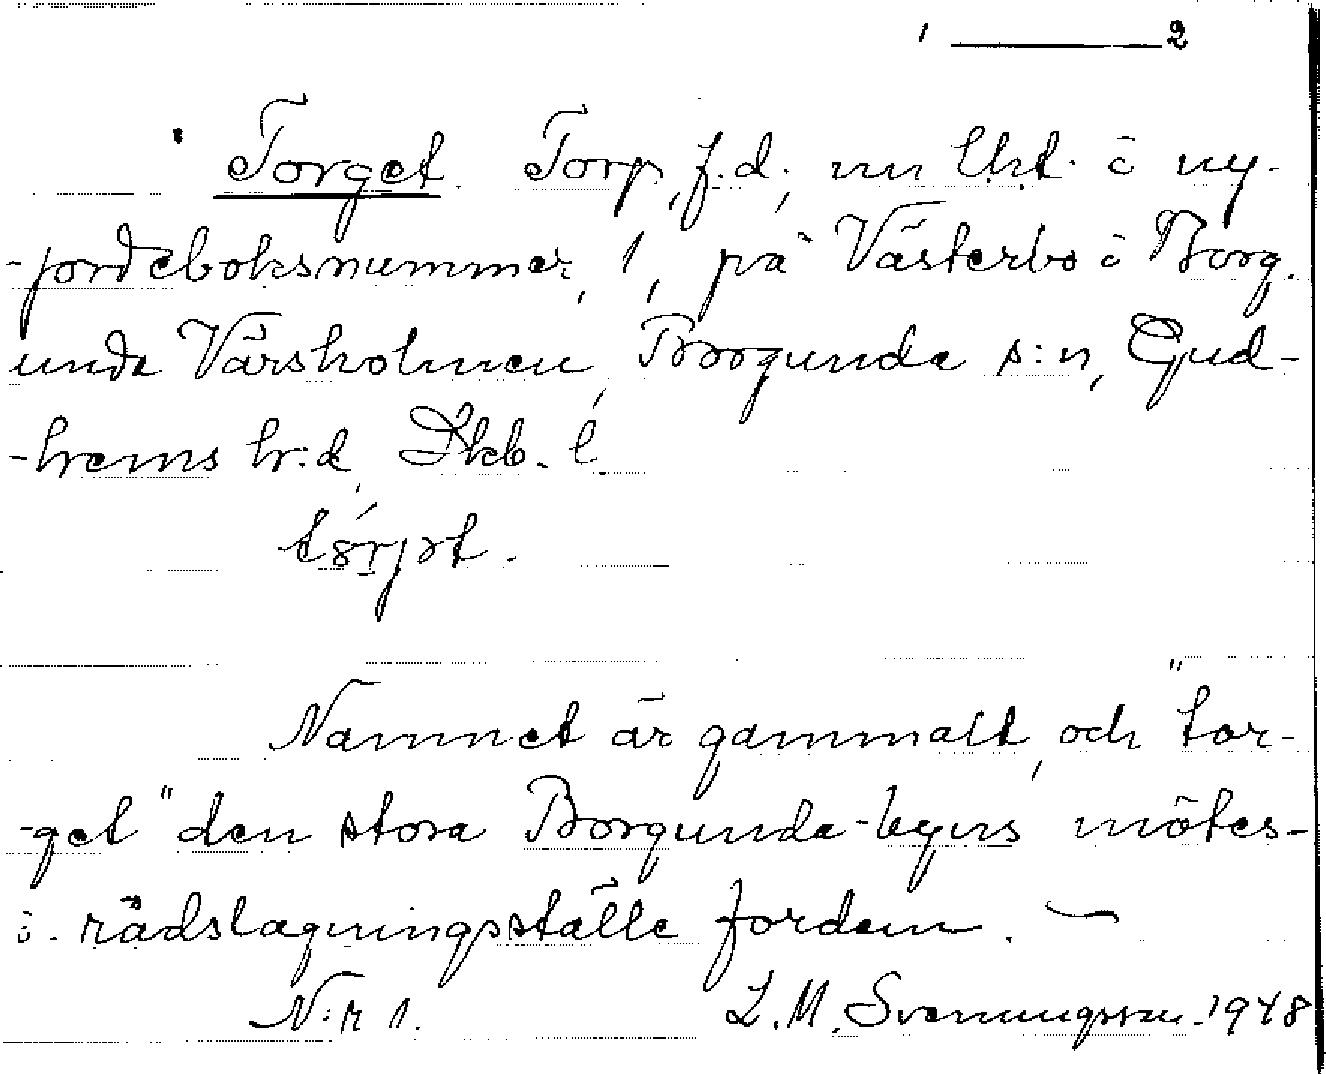 1 ——— 2
Torget Torp, f.d., nu Lht. å ny-
-jordeboksnummer, 1, på Västerbo å Borg.
unda Vårsholmen, Borgunda s:n, Gud-
-hems hr:d, Skb. l.
Namnet är gammalt, och "tor-
-get" den stora Borgunda-byns mötes-
o. rådslagningsställe fordom. —
N:r 1. L.M. Svenungsson. 1948